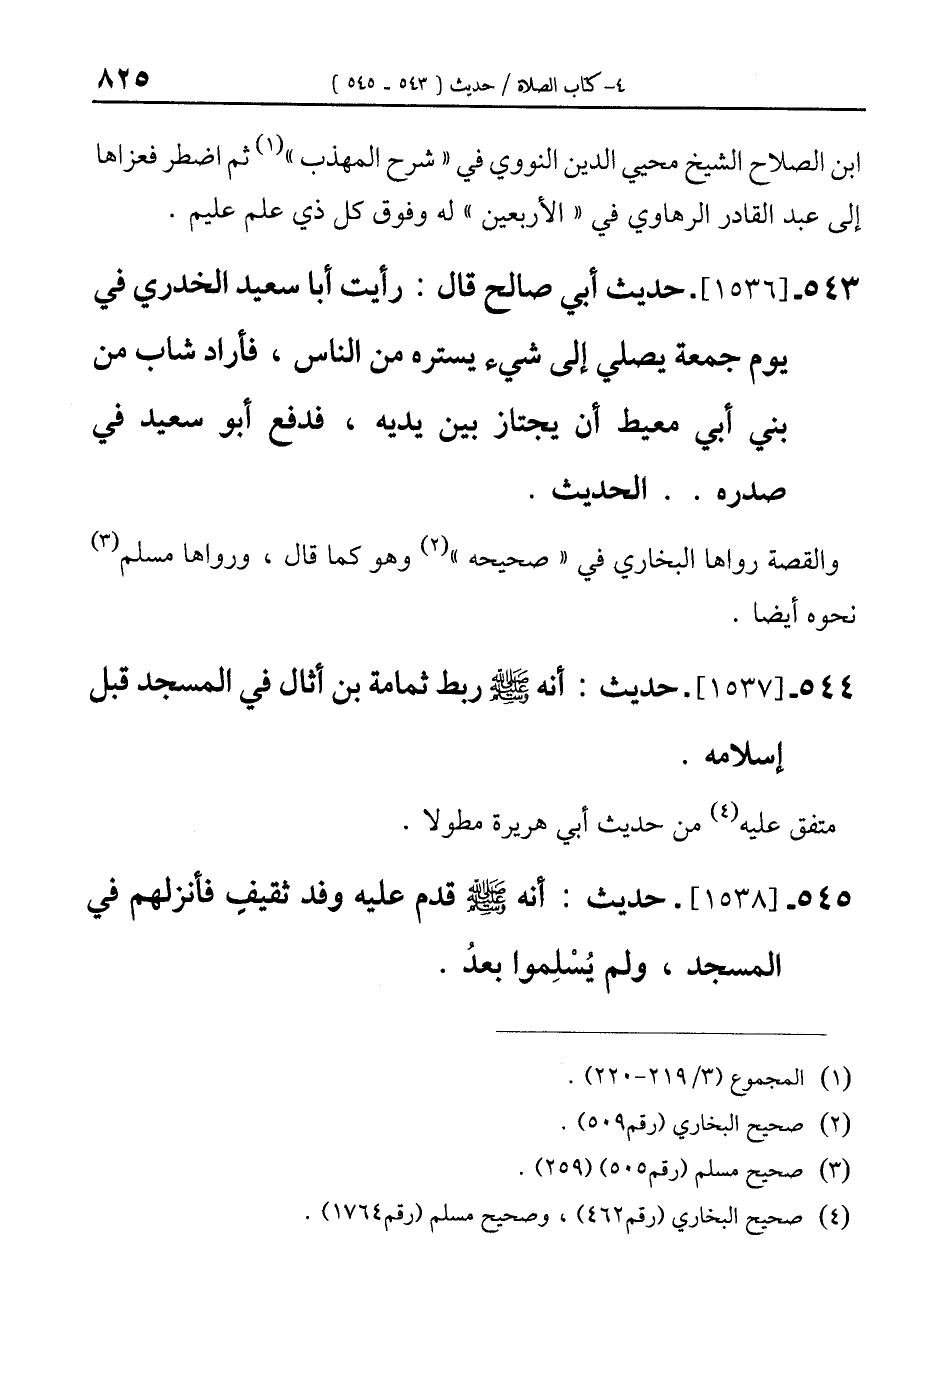 ٤- كتاب الصلاة / حديث ( ٥٤٣ - ٥٤٥ )
٨٢٥
ابن الصلاح الشيخ محيي الدين النووي في « شرح المهذب »(١) ثم اضطر فعزاها
إلى عبد القادر الرهاوي في « الأربعين » له وفوق كل ذي علم عليم .
٥٤٣ـ [١٥٣٦]. حديث أبي صالح قال : رأيت أبا سعيد الخدري في
يوم جمعة يصلي إلى شيء يستره من الناس ، فأراد شاب من
بني أبي معيط أن يجتاز بين يديه ، فدفع أبو سعيد في
صدره . . الحديث .
والقصة رواها البخاري في « صحيحه »(٢) وهو كما قال ، ورواها مسلم(٣)
نحوه أيضا .
٥٤٤ـ [١٥٣٧]. حديث : أنه ﷺ ربط ثمامة بن أثال في المسجد قبل
إسلامه .
متفق عليه(٤) من حديث أبي هريرة مطولا .
٥٤٥ـ [١٥٣٨]. حديث : أنه ﷺ قدم عليه وفد ثقيفٍ فأنزلهم في
المسجد ، ولم يُسْلِموا بعدُ .
(١) المجموع (٣/ ٢١٩-٢٢٠) .
(٢) صحيح البخاري (رقم٥٠٩) .
(٣) صحيح مسلم (رقم٥٠٥) (٢٥٩) .
(٤) صحيح البخاري (رقم٤٦٢) ، وصحيح مسلم (رقم١٧٦٤) .